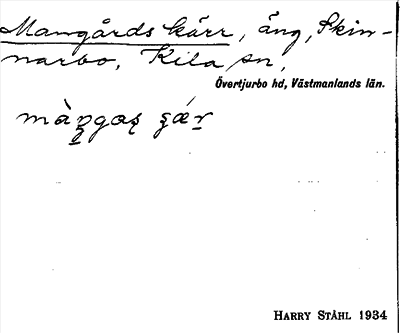 Mangårds kärr, äng, Skin-
narbo, Kila sn,
Övertjurbo hd, Västmanlands län.
HARRY STÅHL 1934